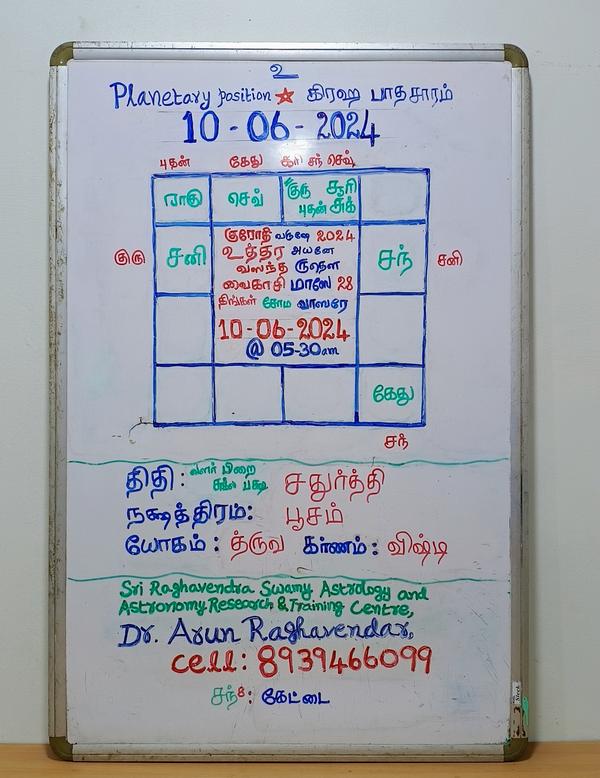 உ
Planetary position ☆ கிரஹ பாதசாரம்
10-06-2024
புதன் கேது சூரி சந் செவ்
ராகு செவ் குரு சூரி
புதன் சுக்
குரோதி வருஷே 2024
உத்தர அயனே
குரு சனி வஸந்த ருதௌ சந் சனி
வைகாசி மாஸே 28
திங்கள் சோம வாஸரே
10-06-2024
@ 05-30am
கேது
சந்
திதி: வளர் பிறை சதுர்த்தி
சுக்ல பக்ஷ
நக்ஷத்திரம்: பூசம்
யோகம்: த்ருவ கரணம்: விஷ்டி
Sri Raghavendra Swamy Astrology and
Astronomy Research & Training Centre,
Dr. Arun Raghavendar,
Cell: 8939466099
சந்8: கேட்டை